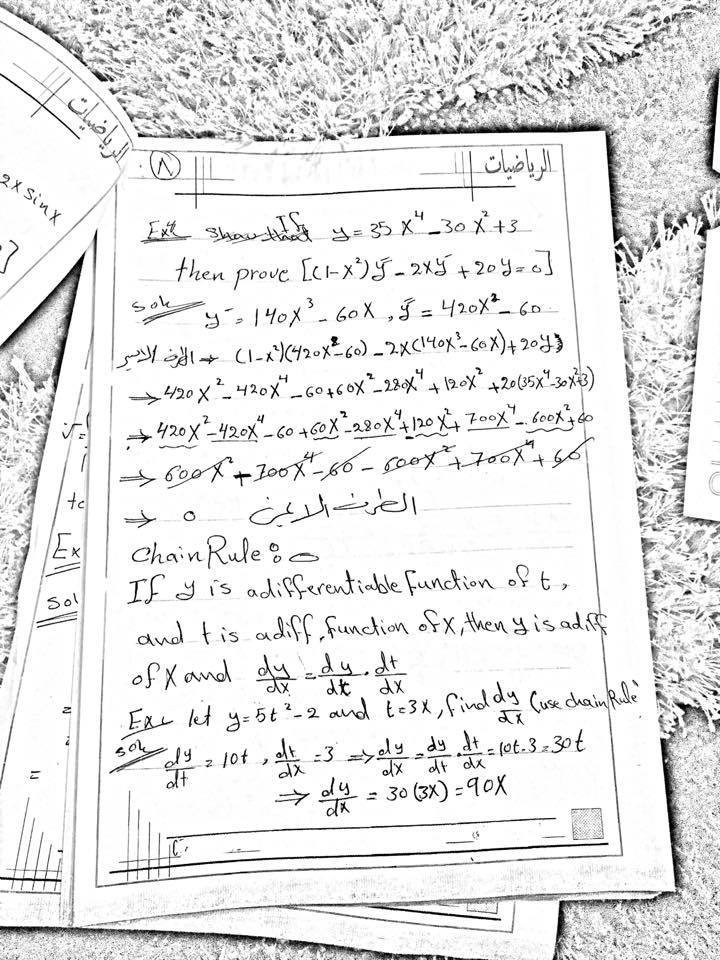 الرياضيات
2x sinx
]
٨
الرياضيات
Ex: Show that If y = 35x⁴ - 30x² + 3
then prove [(1-x²)y̿ - 2xy̅ + 20y = 0]
Sol: y̅ = 140x³ - 60x , y̿ = 420x² - 60
الطرف الايسر ⇒ (1-x²)(420x²-60) - 2x(140x³-60x) + 20y
⇒ 420x² - 420x⁴ - 60 + 60x² - 280x⁴ + 120x² + 20(35x⁴-30x²+3)
⇒ 420x² - 420x⁴ - 60 + 60x² - 280x⁴ + 120x² + 700x⁴ - 600x² + 60
⇒ 600x² - 700x⁴ - 60 - 600x² + 700x⁴ + 60
⇒ 0 الطرف الايمن
Chain Rule :
If y is a differentiable function of t,
and t is a diff. function of x, then y is a diff
of x and dy/dx = dy/dt . dt/dx
Ex: let y = 5t² - 2 and t = 3x, find dy/dx (use chain Rule)
Sol: dy/dt = 10t , dt/dx = 3 ⇒ dy/dx = dy/dt . dt/dx = 10t . 3 = 30t
⇒ dy/dx = 30(3x) = 90x
Ex
Sol